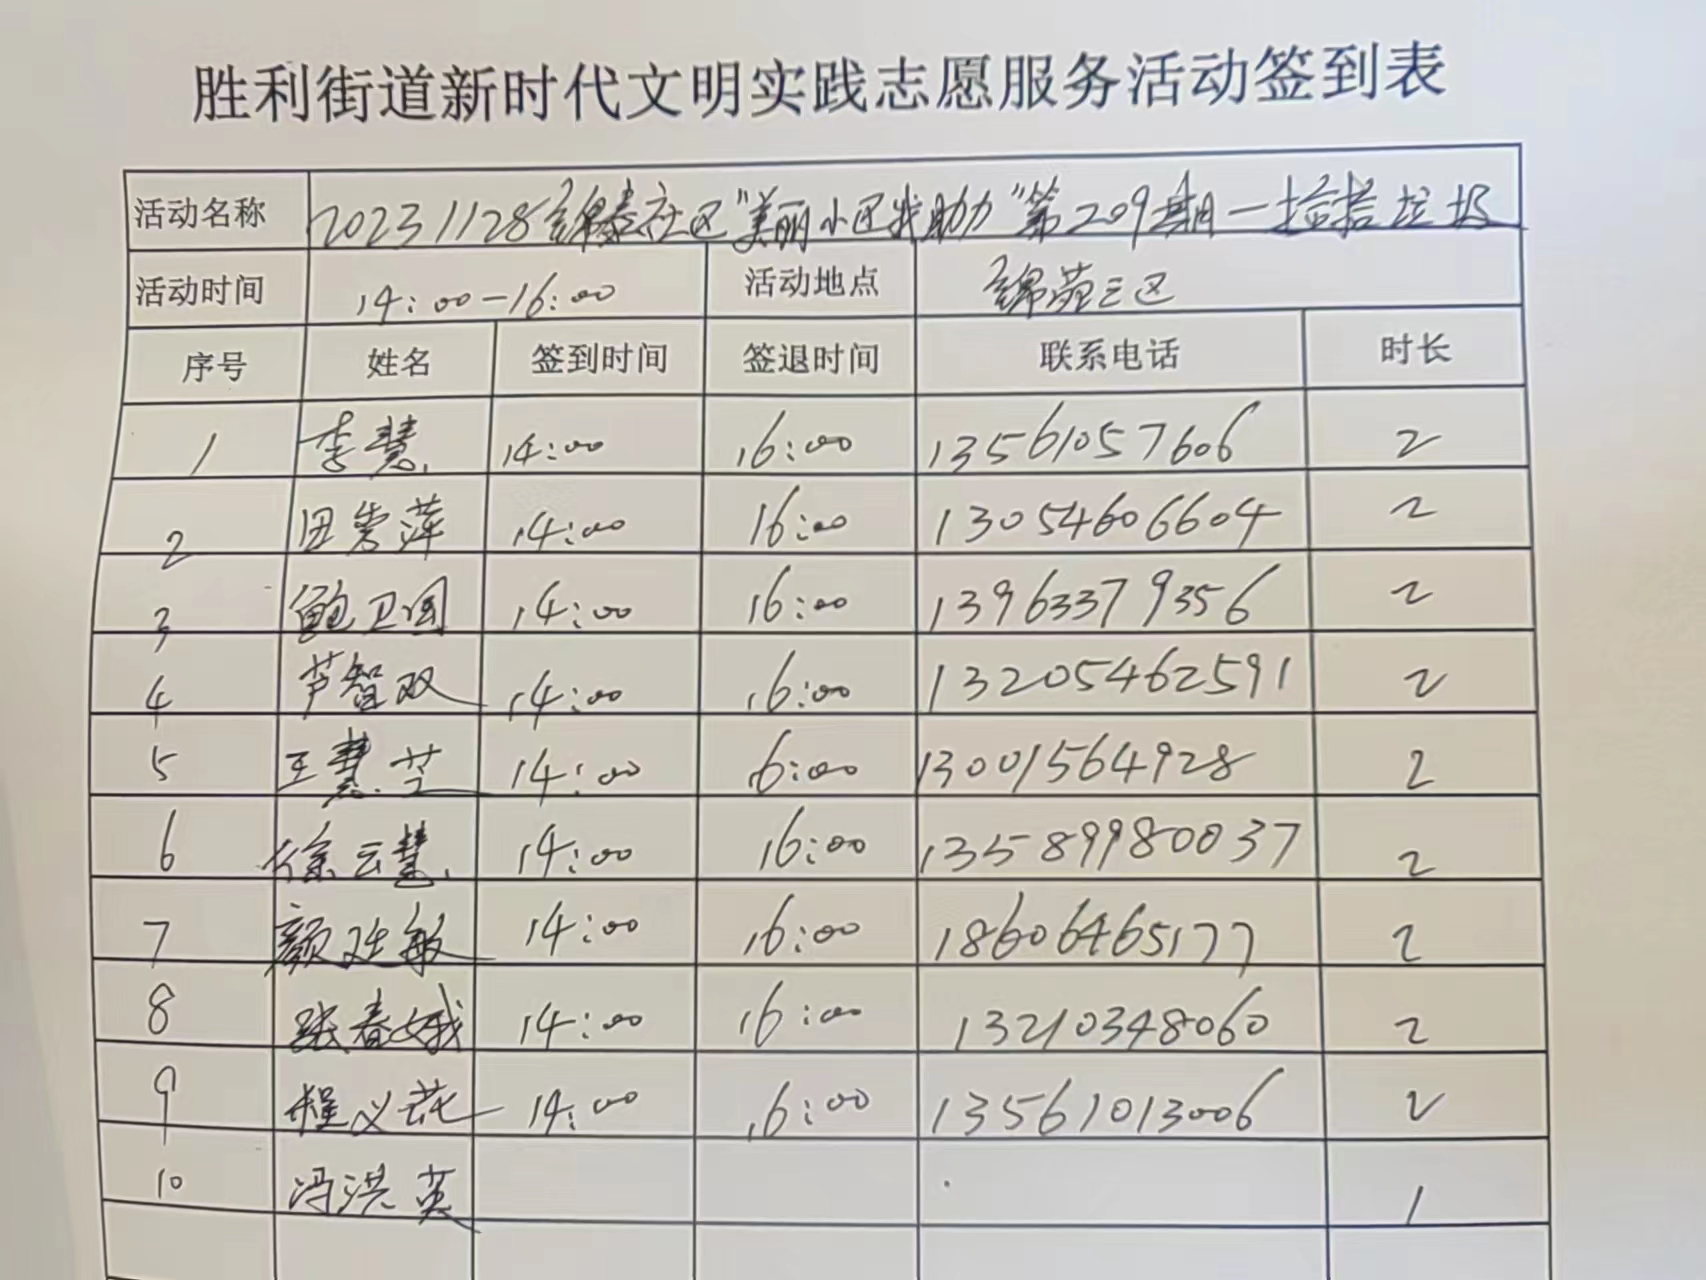 胜利街道新时代文明实践志愿服务活动签到表
活动名称 20231128锦泰社区"美丽小区我助力"第209期一捡拾垃圾
活动时间 14:00-16:00 活动地点 锦苑三区
序号 姓名 签到时间 签退时间 联系电话 时长
1 李慧 14:00 16:00 13561057606 2
2 田秀萍 14:00 16:00 13054606604 2
3 鲍卫国 14:00 16:00 13963379356 2
4 芦智双 14:00 16:00 13205462591 2
5 王慧芝 14:00 16:00 13001564928 2
6 徐云慧 14:00 16:00 13589980037 2
7 颜廷敏 14:00 16:00 18606465177 2
8 张春娥 14:00 16:00 13210348060 2
9 程义花 14:00 16:00 13561013006 2
10 冯洪英 1